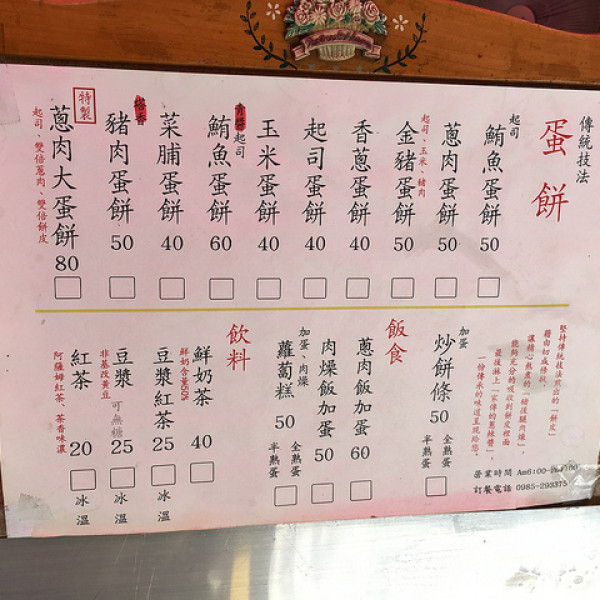 傳統技法
蛋餅
起司
鮪魚蛋餅 50
蔥肉蛋餅 50
起司、玉米、豬肉
金豬蛋餅 50
香蔥蛋餅 40
起司蛋餅 40
玉米蛋餅 40
青醬起司
鮪魚蛋餅 60
菜脯蛋餅 40
塔香
豬肉蛋餅 50
特製
蔥肉大蛋餅 80
起司、雙倍蔥肉、雙倍餅皮
堅持傳統技法煎出的「餅皮」
藉由切成條狀，
讓精心熬煮的「豬後腿肉燥」，
能夠充分的吸收到餅皮裡面
最後淋上「家傳的蔥辣醬」，
一份傳承的味道呈現給您。
營業時間 Am6:00-
訂餐電話 0985-293375
加蛋
炒餅條 50
全熟蛋
半熟蛋
飯食
蔥肉飯加蛋 60
肉燥飯加蛋 50
加蛋、肉燥
蘿蔔糕 50
全熟蛋
半熟蛋
飲料
鮮奶茶 40
鮮奶含量50%
豆漿紅茶 25
冰 溫
豆漿 25
非基改黃豆
可無糖
冰 溫
紅茶 20
阿薩姆紅茶、茶香味濃
冰 溫